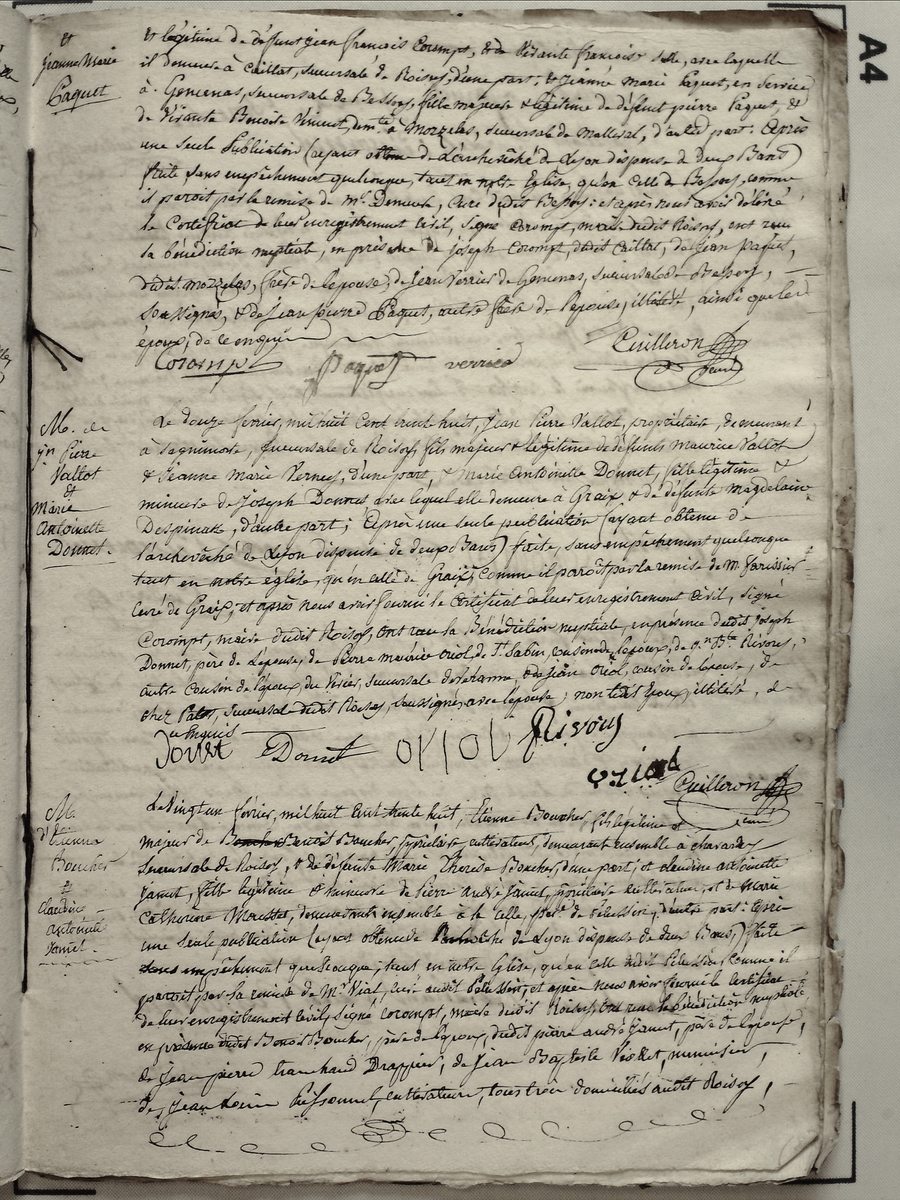 A4
et
Jeanne Marie
Paquet
& légitime de défunt jean françois Corompt, & de vivante françoise avec laquelle
il demeure à Caillat, succursale de Roisey, d'une part; & Jeanne Marie Paquet, en service
à Gemenas, succursale de Bessey, fille majeure & légitime de défunt pierre Paquet, &
de vivante Benoite Vincent, à Mozzelas, succursale de Malleval, d'autre part: Après
une seule Publication (ayant obtenu de L'archevêché de Lyon dispense de deux Bans)
faite sans empêchement quelconque, tant en notre Eglise, qu'en Celle de Bessey, comme
il paroit par la remise de Mr. Curé dudit Bessey: et après nous avoir délivré
le Certificat de leur enregistrement Civil, Signé Corompt, maire dudit Roisey, ont reçu
la bénédiction nuptiale, en présence de joseph Corompt, dudit Caillat, de Jean Paquet,
dudit Mozzelas, frère de l'épouse, de jean Verrier de Gemenas, succursale de Bessey,
Soussignés, & de jean pierre Paquet, autre frère de l'épouse, illétéré, ainsi que les
époux, de ce enquis
Corompt paquet verrier
Cuilleron
curé
M. de
jn Pierre
Vallot
et
Marie
Antoinette
Donnet.
Le douze février, mil huit Cent trente huit, Jean Pierre Vallot, propriétaire, demeurant
à Sagnimorte, succursale de Roisey, fils majeur & légitime de défunts Maurice Vallot
& Jeanne Marie Verney, d'une part, & Marie Antoinette Donnet, fille légitime &
mineure de Joseph Donnet avec lequel elle demeure à Graix & de défunte Magdelaine
Despinasse, d'autre part; Après une seule publication (ayant obtenu de
l'archevêché de Lyon dispense de deux Bans) faite, sans empêchement quelconque
tant en notre église, qu'en celle de Graix, Comme il paroit par la remise de Mr
Curé de Graix; et après nous avoir fourni le Certificat de leur enregistrement Civil, Signé
Corompt, maire dudit Roisey, Ont reçu la Bénédiction nuptiale, en présence dudit joseph
Donnet, père de l'épouse, de Pierre maurice oriol de St. Sabin, cousin de l'époux, de Rivory,
autre Cousin de l'époux, du succursale de & de jean oriol, cousin de l'épouse, de
chez Palot, succursale dudit Roisey, soussignés, avec l'épouse; non l'époux, illétéré, de
ce enquis
Donnet oriol Rivory
oriol
Cuilleron
curé
M.
d'Etienne
Boucher
&
Claudine
Antoinette
Jamet.
Le vingt un février, mil huit Cent trente huit, Etienne Boucher, fils légitime et
majeur de Benoit Boucher, propriétaire cultivateur, demeurant ensemble à
Succursale de Roisey, & de défunte Marie Thérèse Boucher, d'une part; et claudine antoinette
Jamet, fille légitime & mineure de pierre andré Jamet, propriétaire cultivateur, et de Marie
Catherine Mousset, demeurants ensemble à la Celle, de Pélussin, d'autre part: Après
une seule publication (ayant obtenu de l'archevêché de Lyon dispense de deux Bans,) faite
sans empêchement quelconque, tant en notre Eglise, qu'en celle dudit Pélussin, comme il
paroit par la remise de Mr Vial, curé audit Pélussin, et après nous avoir fourni le certificat
de leur enregistrement civil, signé corompt, maire dudit Roisey, ont reçu la bénédiction nuptiale
en présence dudit Benoit Boucher, père de l'époux, dudit pierre andré Jamet, père de l'épouse,
de Jean pierre Drappier, de Jean Baptiste Viollet, menuisier,
de Jean cultivateur, tous trois domiciliés audit Roisey,